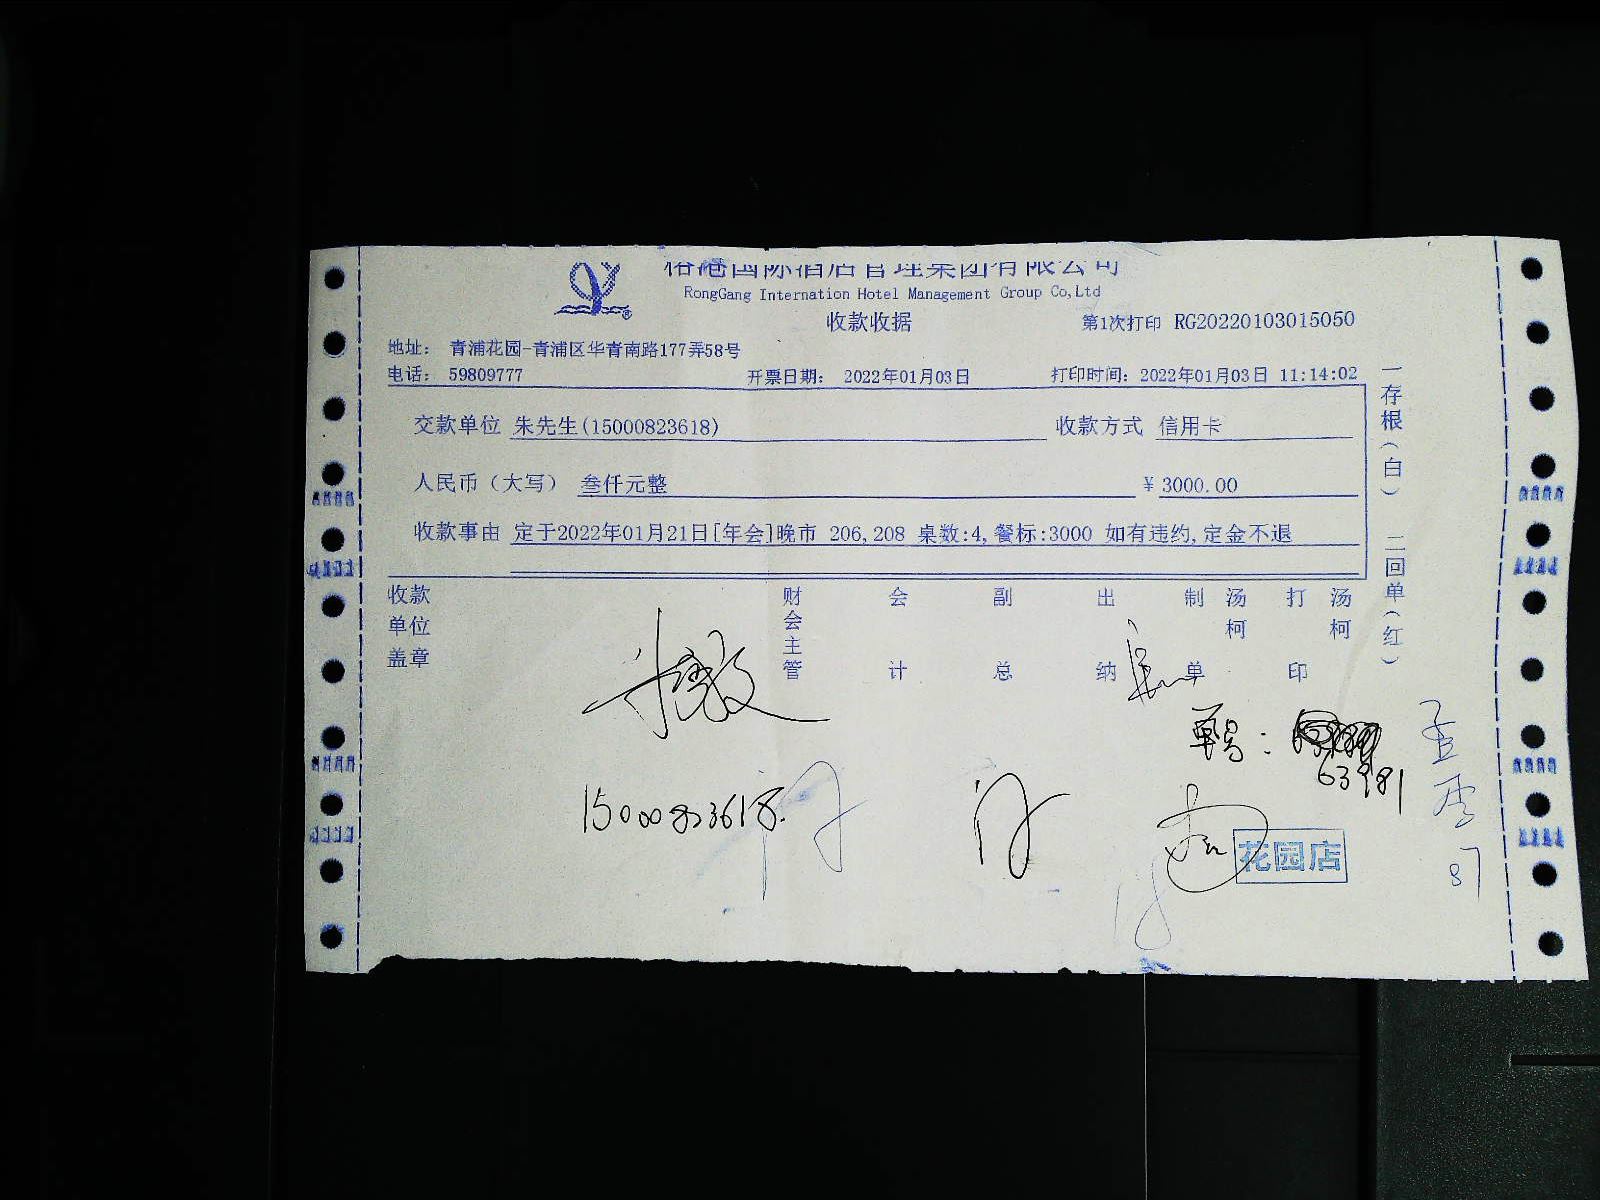 裕港国际酒店管理集团有限公司
RongGang Internation Hotel Management Group Co,Ltd
收款收据 第1次打印 RG20220103015050
地址： 青浦花园-青浦区华青南路177弄58号
电话： 59809777 开票日期： 2022年01月03日 打印时间：2022年01月03日 11:14:02
交款单位 朱先生(15000823618) 收款方式 信用卡
人民币（大写） 叁仟元整 ¥ 3000.00
收款事由 定于2022年01月21日[年会]晚市 206,208 桌数:4,餐标:3000 如有违约,定金不退
一存根（白） 二回单（红）
收款单位盖章 财会主管 会计 副总 出纳 制单 汤柯 打印 汤柯
单号：
63981
15000823618.
花园店
87